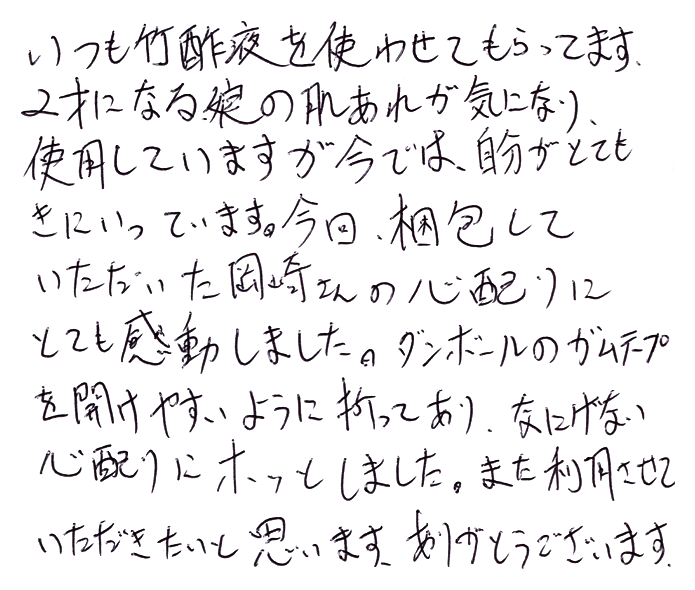 いつも竹酢液を使わせてもらってます、
2才になる娘の肌あれが気になり、
使用していますが今では、自分がとても
きにいっています。今回、梱包して
いただいた岡崎さんの心配りに
とても感動しました。ダンボールのガムテープ
を開けやすいように折ってあり、なにげない
心配りにホッとしました。また利用させて
いただきたいと思います、ありがとうございます、